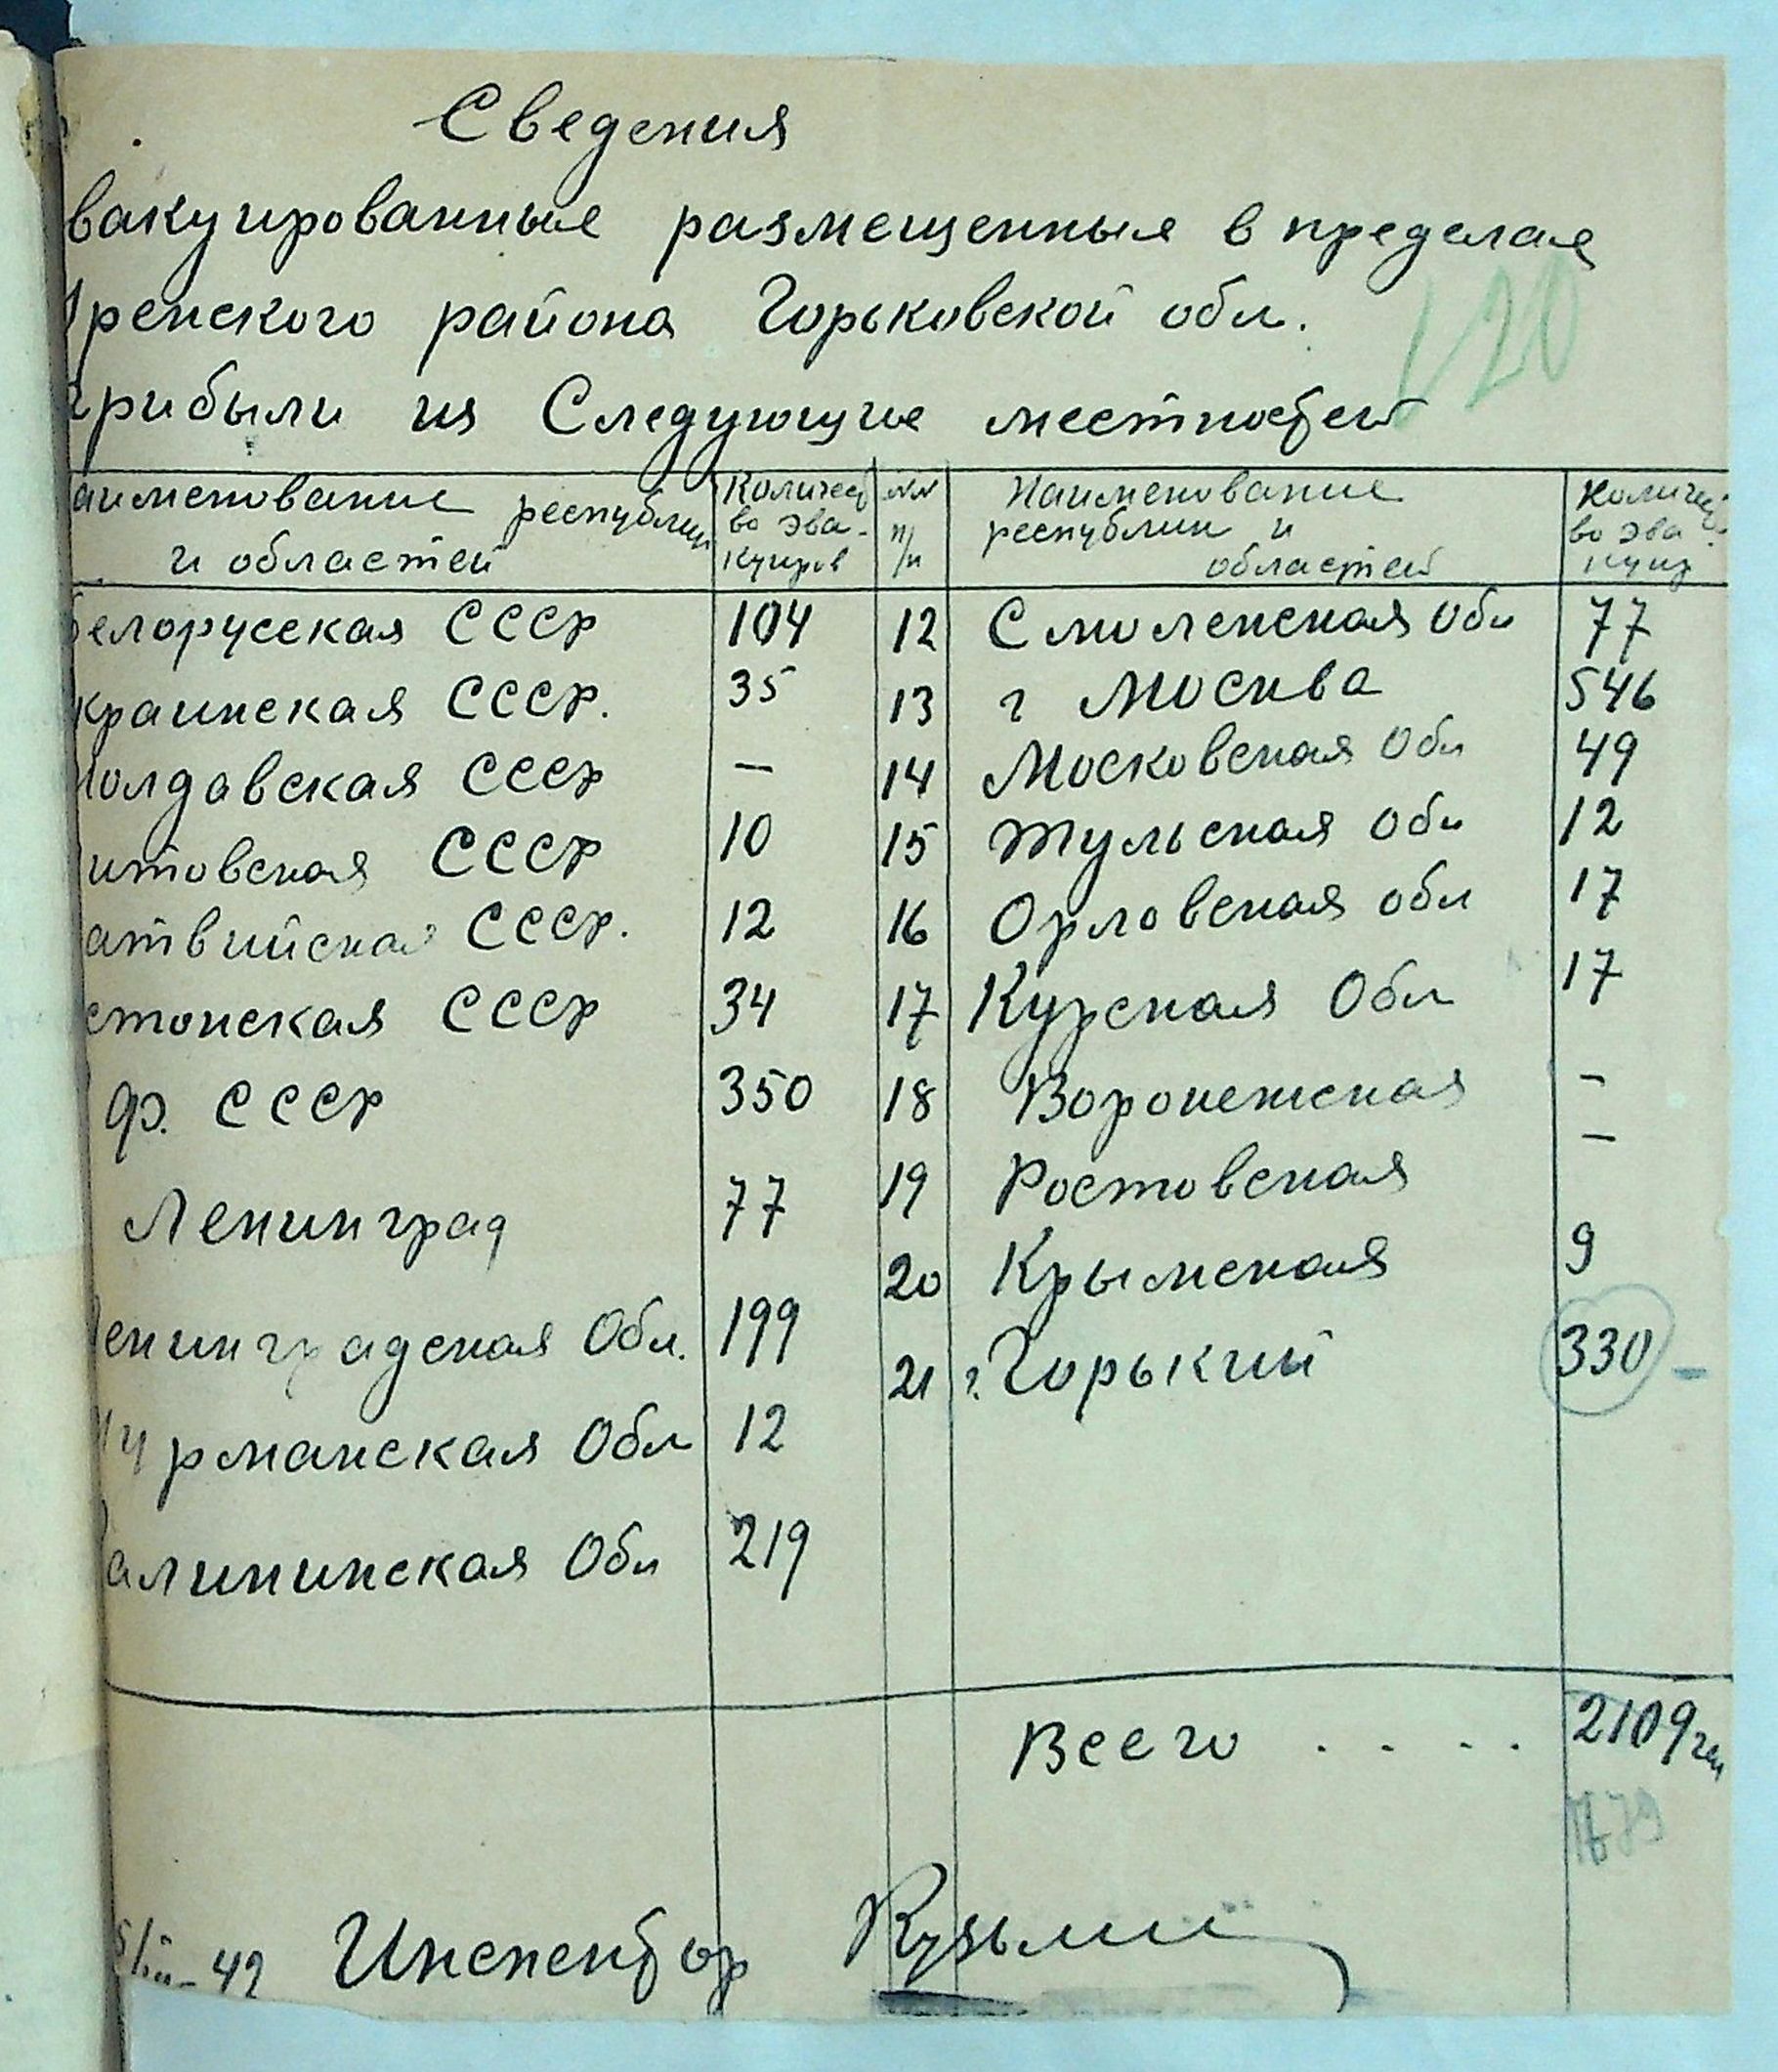 Сведения
вакуированные размещенные в пределах
ренского района Горьковской обл.
прибыли из Следующие местностей
120
аименование республик
и областей
Количест
во эва-
куиров
№№
п/п
Наименование
республик и
областей
Количес
во эва
куир
белорусская СССР 104 12 Смоленская Обл 77
краинская СССР. 35 13 г Москва 546
молдавская СССР — 14 Московская Обл 49
итовская СССР 10 15 Тульская Обл 12
атвийская СССР. 12 16 Орловская обл 17
стонская СССР 34 17 Курская Обл 17
ф. СССР 350 18 Воронежская –
Ленинград 77 19 Ростовская –
енинградская Обл. 199 20 Крымская 9
урманская Обл 12 21 г. Горький 330
алининская Обл 219
Всего . . . . 2109
42 Инспектор Кузьмин